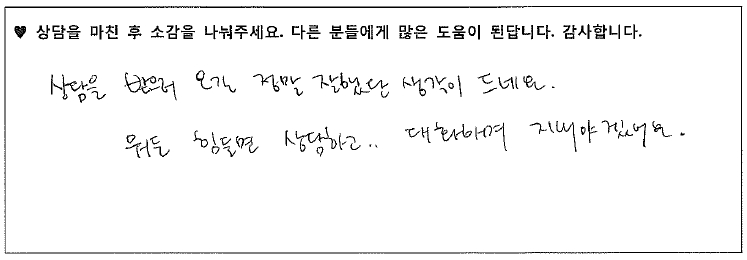 ♥ 상담을 마친 후 소감을 나눠주세요. 다른 분들에게 많은 도움이 된답니다. 감사합니다.
상담을 받으러 오길 정말 잘했단 생각이 드네요.
뭐든 힘들면 상담하고.. 대화하며 지내야겠어요.